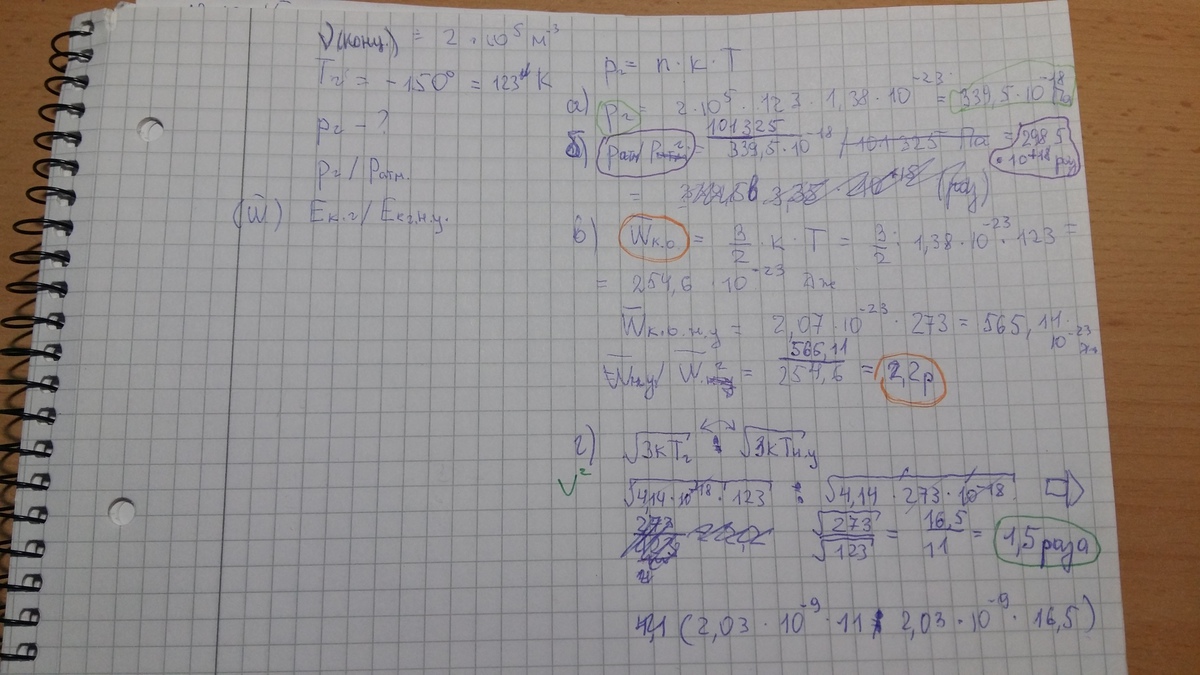 ν(конц.) = 2 · 10⁵ м⁻³
Tг = -150° = 123 K
pг - ?
Pг / Pатм.
(W̄) Eк.г / Eк.г.н.у.
pг = n · k · T
а) Pг = 2 · 10⁵ · 123 · 1,38 · 10⁻²³ = 339,5 · 10⁻¹⁸ Па
б) Pатм / Pг = 101325 / 339,5 · 10⁻¹⁸ / 101325 Па = 298,5 · 10⁺¹⁸ раз
= (раз)
в) W̄к.о = 3/2 · k · T = 3/2 · 1,38 · 10⁻²³ · 123 =
= 254,6 · 10⁻²³ Дж
W̄к.о.н.у = 2,07 · 10⁻²³ · 273 = 565,11 · 10⁻²³ Дж
W̄н.у / W̄г = 566,11 / 254,6 = 2,2 р
г) √3kTг : √3kTн.у
v² √4,14 · 10⁻¹⁸ · 123 : √4,14 · 273 · 10⁻¹⁸ ⇨
√273 / √123 = 16,5 / 11 = 1,5 раза
(2,03 · 10⁻⁹ · 11 2,03 · 10⁻⁹ · 16,5)